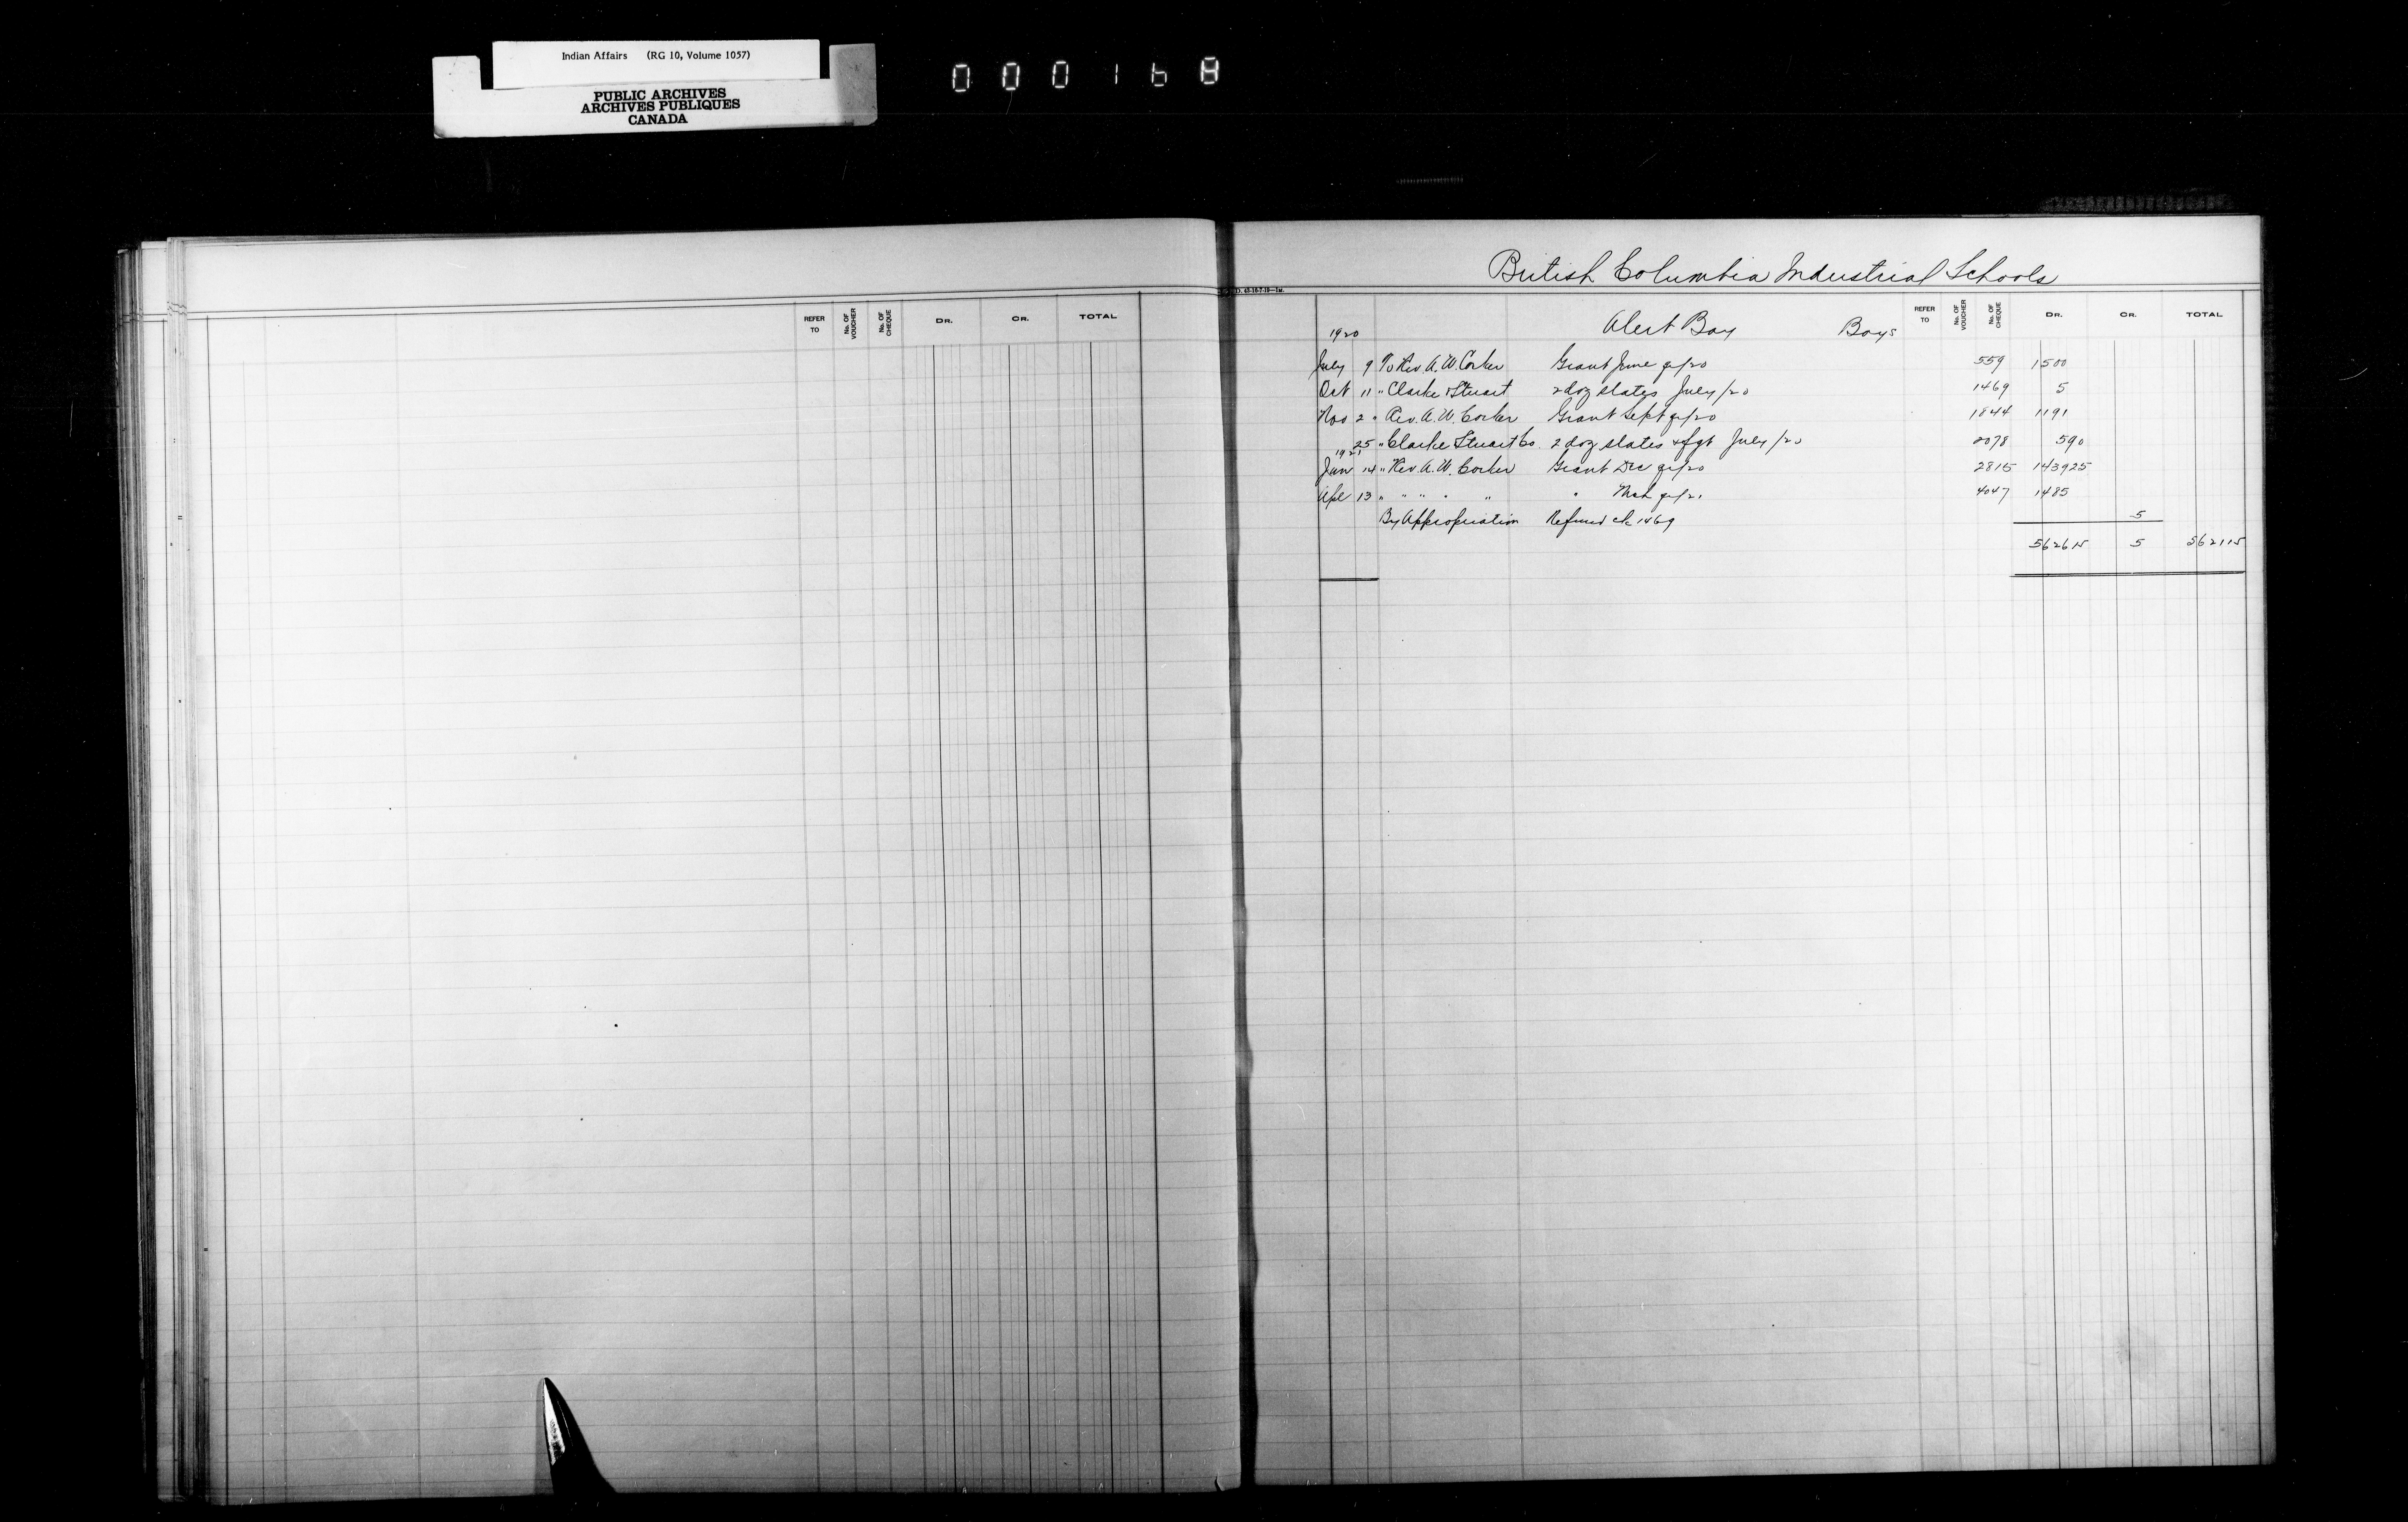 Indian Affairs (RG 10, Volume 1057)
PUBLIC ARCHIVES
ARCHIVES PUBLIQUES
CANADA
000168
REFER TO No. OF VOUCHER No. OF CHEQUE DR. CR. TOTAL
British Columbia Industrial Schools
REFER TO No. OF VOUCHER No. OF CHEQUE DR. CR. TOTAL
1920 Alert Bay Boys
July 9 To Rev. A. W. Corker Grant June qr/20 559 1500
Oct 11 " Clarke & Stuart 2 doz slates July/20 1469 5
Nov 2 " Rev. A. W. Corker Grant Sept qr/20 1844 1191
25 " Clarke Stuart Co. 2 doz slates & fgt July/20 2078 590
1921
Jan 14 " Rev A. W. Corker Grant Dec qr/20 2815 143925
Apl 13 " " " " " " Mch qr/21 4047 1485
By Appropriation Refund ck 1469 5
562615 5 562115